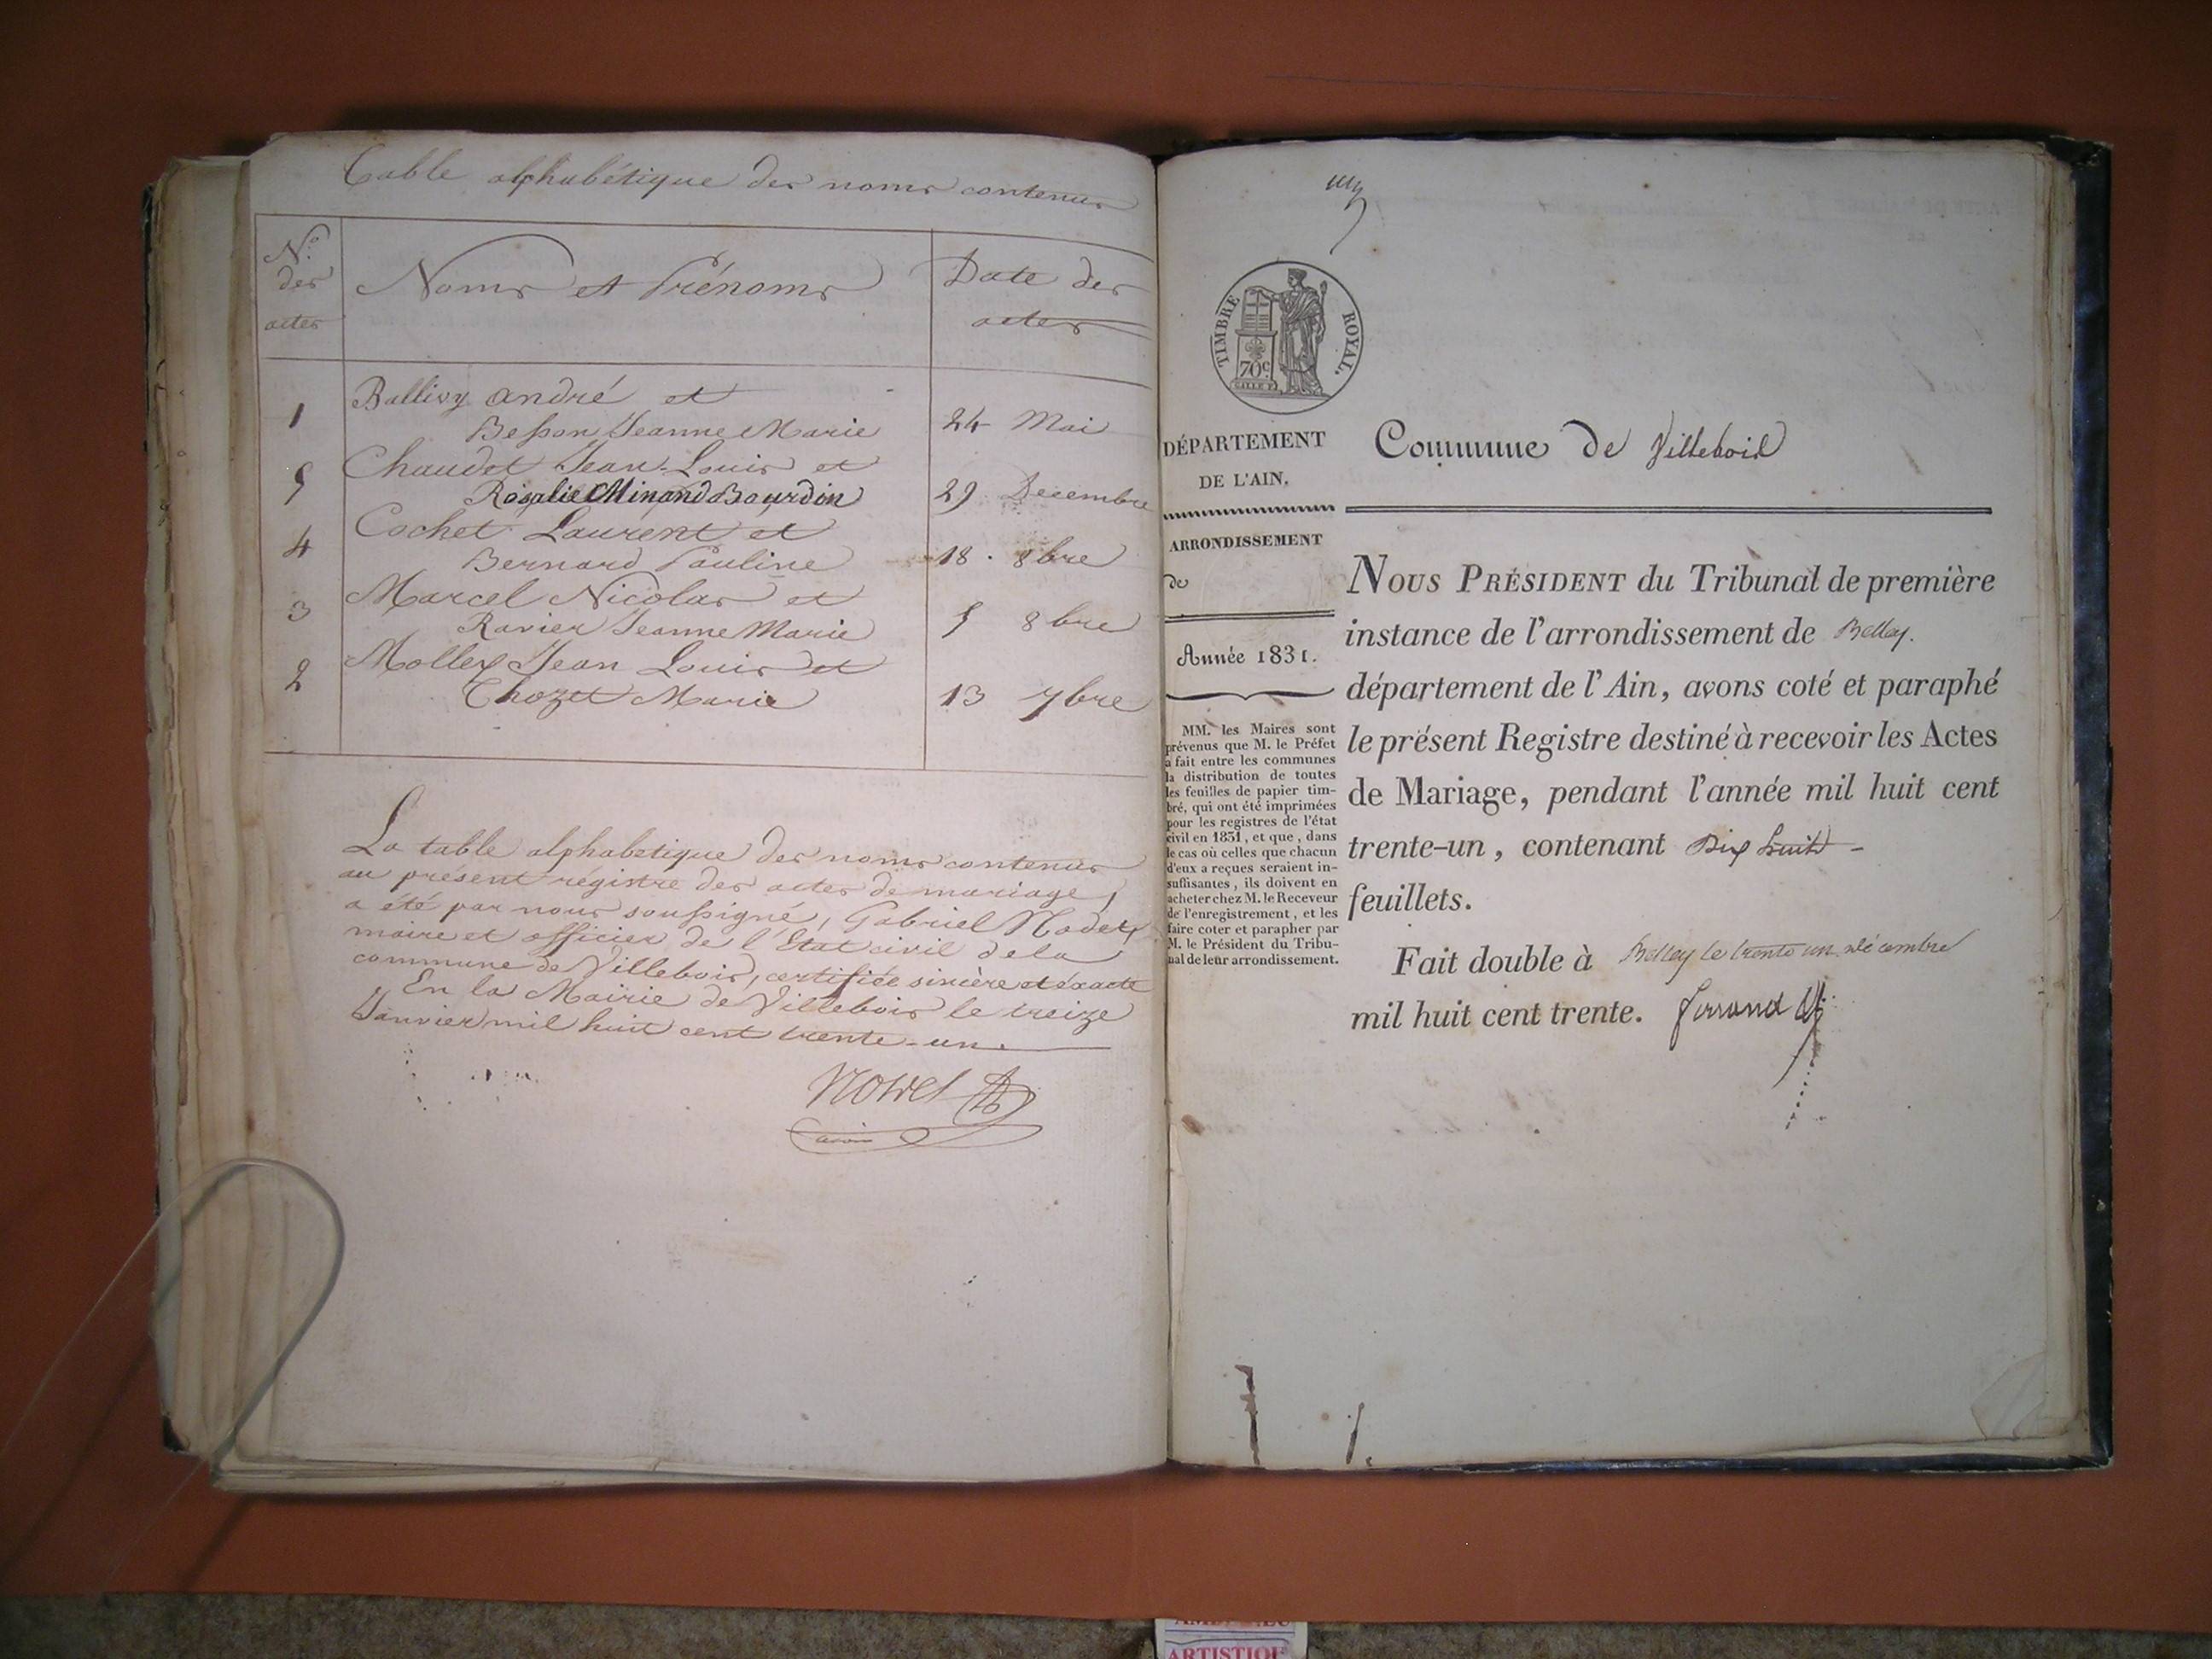 Table alphabétique des noms contenus
N.º des actes
Noms et Prénoms
Date des actes
1 Ballivy André et
Besson Jeanne Marie 24 Mai
5 Chaudet Jean-Louis et
Rosalie Minand Bourdin 29 Decembre
4 Cochet Laurent et
Bernard Pauline 18. 8bre
3 Marcel Nicolas et
Ravier Jeanne Marie 5 8bre
2 Mollex Jean Louis et
Chozet Marie 13 7bre
La table alphabétique des noms contenus
au présent régistre des actes de mariage,
a été par nous soussigné, Gabriel
maire et officier de l'Etat civil de la
commune de Villebois, certifiée sincère et éxacte
En la Mairie de Villebois le treize
Janvier mil huit cent trente-un.
TIMBRE ROYAL.
70c
DÉPARTEMENT
DE L'AIN.
ARRONDISSEMENT
de
Année 1831.
MM. les Maires sont
prévenus que M. le Préfet
a fait entre les communes
la distribution de toutes
les feuilles de papier tim-
bré, qui ont été imprimées
pour les registres de l'état
civil en 1831, et que, dans
le cas où celles que chacun
d'eux a reçues seraient in-
suffisantes, ils doivent en
acheter chez M. le Receveur
de l'enregistrement, et les
faire coter et parapher par
M. le Président du Tribu-
nal de leur arrondissement.
Commune de Villebois
NOUS PRÉSIDENT du Tribunal de première
instance de l'arrondissement de Belley.
département de l'Ain, avons coté et paraphé
le présent Registre destiné à recevoir les Actes
de Mariage, pendant l'année mil huit cent
trente-un, contenant Dix huit -
feuillets.
Fait double à Belley le trente un décembre
mil huit cent trente. Ferrand
ARTISTIQUE